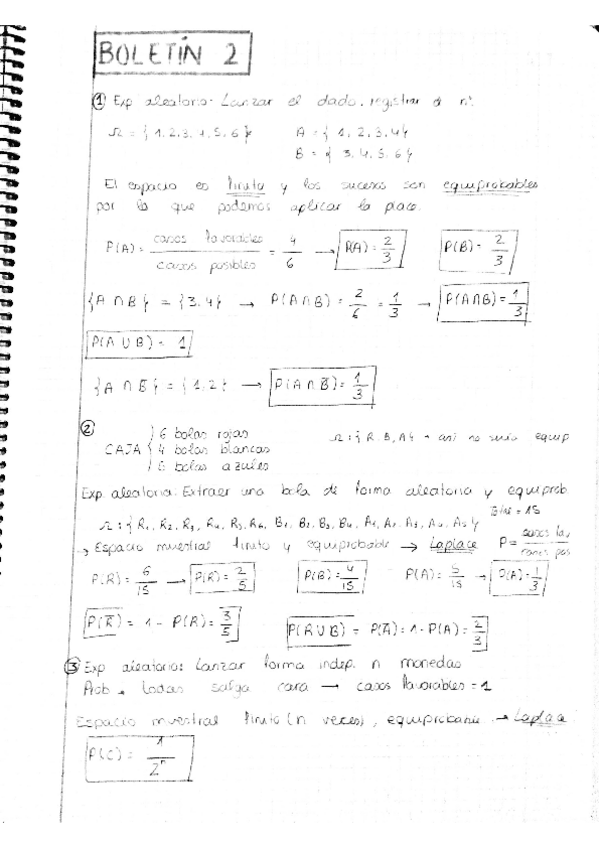 BOLETÍN 2
① Exp aleatorio: Lanzar el dado, registrar el nº.
Ω = { 1, 2, 3, 4, 5, 6 } A = { 1, 2, 3, 4 }
B = { 3, 4, 5, 6 }
El espacio es finito y los sucesos son equiprobables
por lo que podemos aplicar la place.
P(A) = casos favorables / casos posibles = 4/6 → P(A) = 2/3 P(B) = 2/3
{A ∩ B} = {3, 4} → P(A ∩ B) = 2/6 = 1/3 → P(A∩B) = 1/3
P(A ∪ B) = 1
{A ∩ B̅} = {1, 2} → P(A ∩ B̅) = 1/3
②
6 bolas rojas
CAJA { 4 bolas blancas Ω = {R, B, A} → así no sería equip
5 bolas azules
Exp. aleatorio: Extraer una bola de forma aleatoria y equiprob.
Ω = { R₁, R₂, R₃, R₄, R₅, R₆, B₁, B₂, B₃, B₄, A₁, A₂, A₃, A₄, A₅ } = 15
→ Espacio muestral finito y equiprobable → Laplace P = casos fav / casos pos
P(R) = 6/15 → P(R) = 2/5 P(B) = 4/15 P(A) = 5/15 → P(A) = 1/3
P(R̅) = 1 - P(R) = 3/5 P(R ∪ B) = P(A̅) = 1 - P(A) = 2/3
③ Exp aleatorio: Lanzar forma indep. n monedas
Prob → todas salga cara → casos favorables = 1
Espacio muestral finito (n veces), equiprobable → Laplace
P(C) = 1/2ⁿ